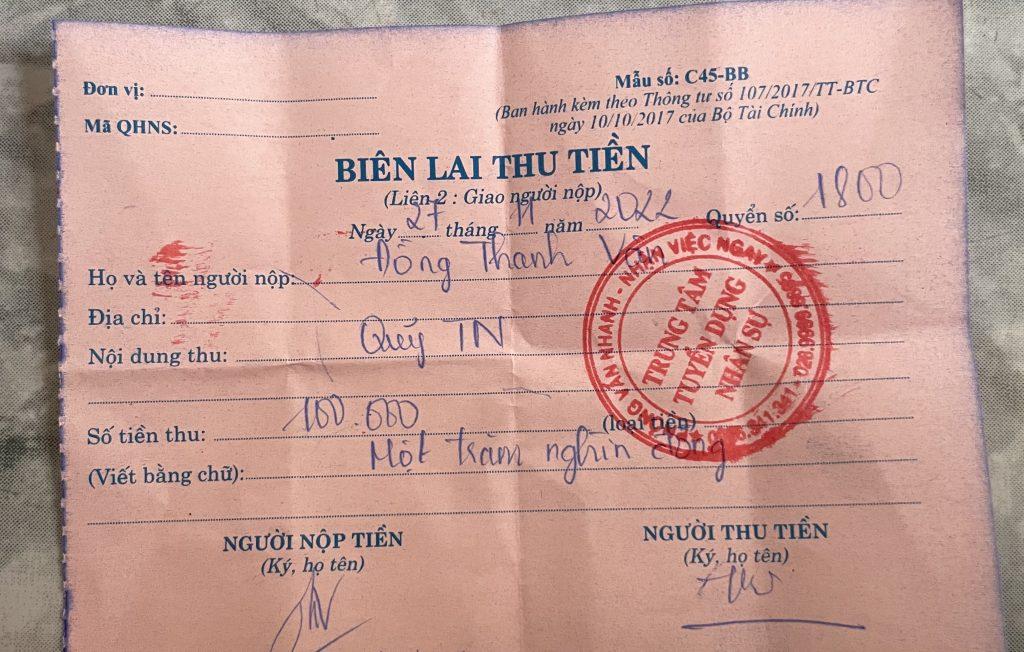 Đơn vị:
Mẫu số: C45-BB
Mã QHNS:
(Ban hành kèm theo Thông tư số 107/2017/TT-BTC
ngày 10/10/2017 của Bộ Tài Chính)
BIÊN LAI THU TIỀN
(Liên 2 : Giao người nộp)
Ngày 27 tháng 11 năm 2022 Quyển số: 1800
Họ và tên người nộp: Đồng Thanh Vân
Địa chỉ:
Nội dung thu: Quỹ TN
Số tiền thu: 100.000 (loại tiền)
(Viết bằng chữ): Một trăm nghìn đồng
NGƯỜI NỘP TIỀN
(Ký, họ tên)
NGƯỜI THU TIỀN
(Ký, họ tên)
VĂN NHANH - NHẬN VIỆC NGAY
TRUNG TÂM
TUYỂN DỤNG
NHÂN SỰ